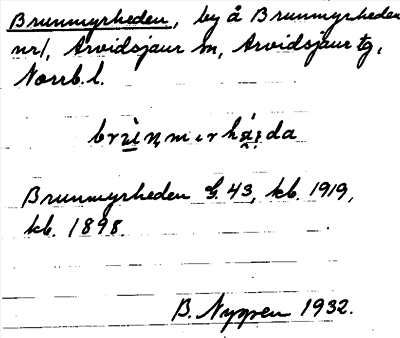 Brunmyrheden, by å Brunmyrheden
nr 1, Arvidsjaur sn, Arvidsjaur tg,
Norrb. l.
Brunmyrheden G. 43, kb. 1919,
kb. 1898.
B. Nyman 1932.